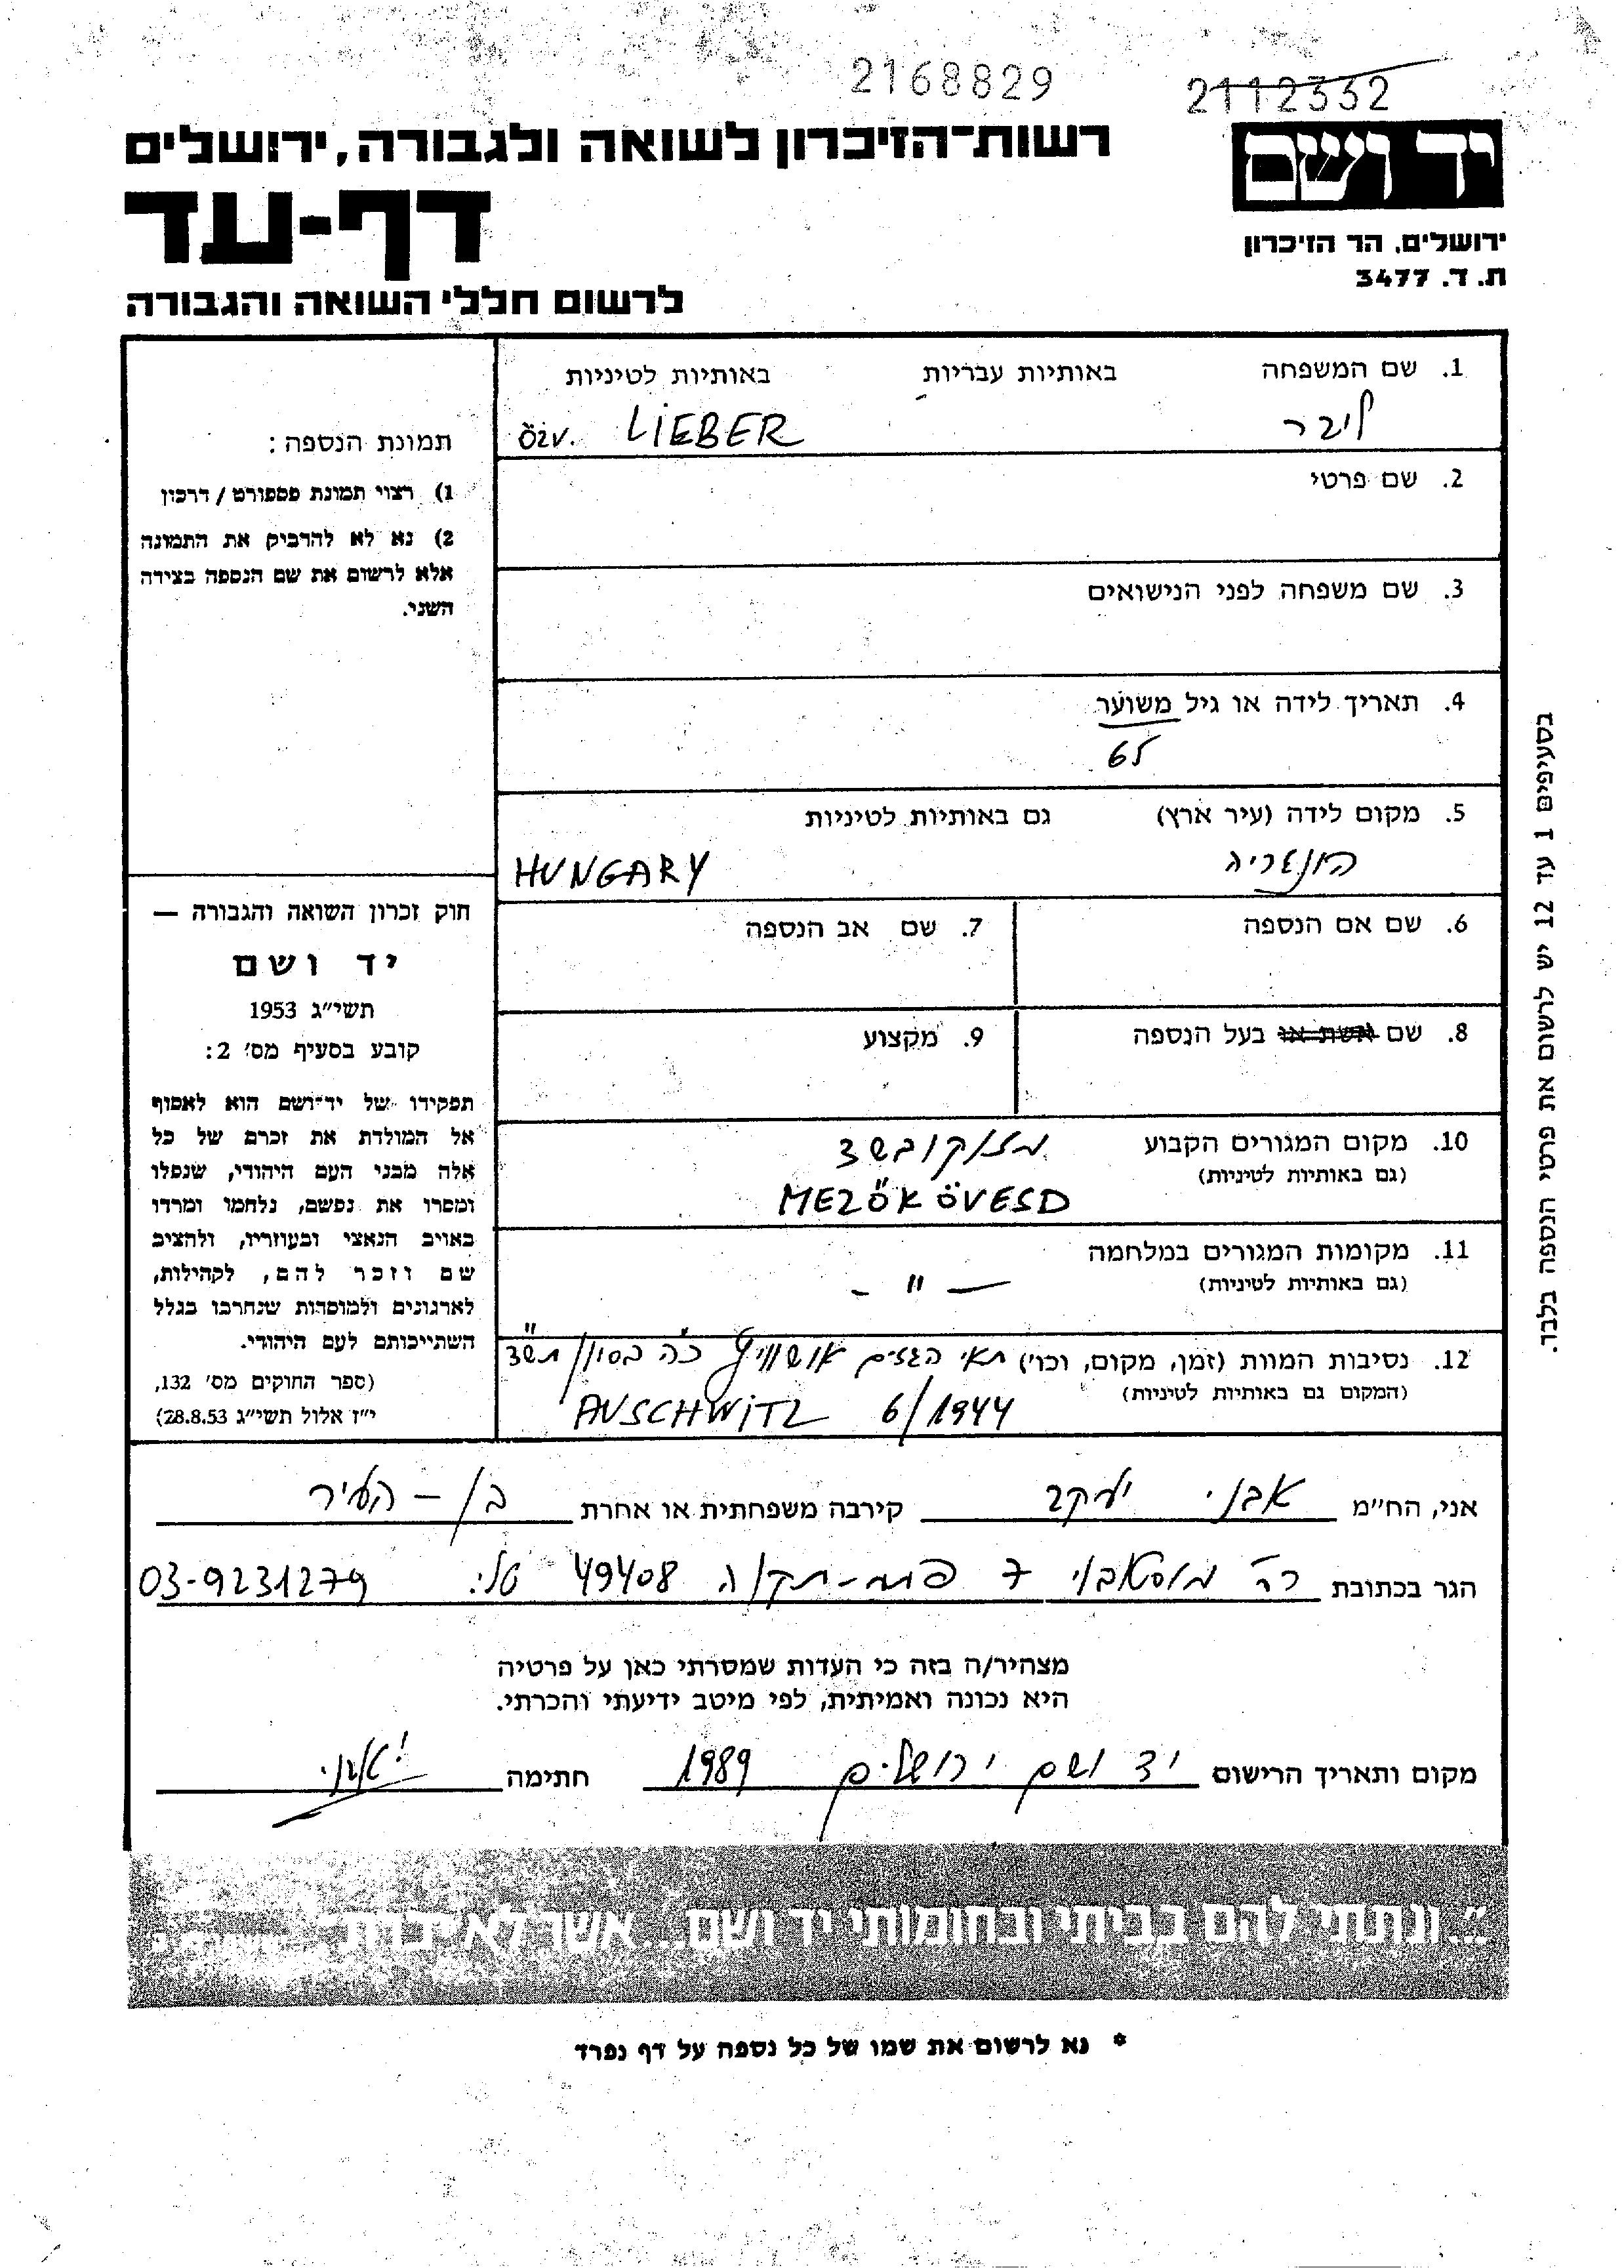 2168829
2112332
יד ושם
רשות־הזיכרון לשואה ולגבורה, ירושלים
דף-עד
ירושלים, הר הזיכרון
ת. ד. 3477
לרשום חללי השואה והגבורה
1. שם המשפחה באותיות עבריות באותיות לטיניות
ליבר özv. LIEBER
2. שם פרטי
3. שם משפחה לפני הנישואים
4. תאריך לידה או גיל משוער
65
5. מקום לידה (עיר ארץ) גם באותיות לטיניות
הונגריה HUNGARY
6. שם אם הנספה 7. שם אב הנספה
8. שם אשת או בעל הנספה 9. מקצוע
10. מקום המגורים הקבוע מזוקובשד
(גם באותיות לטיניות)
MEZÖKÖVESD
11. מקומות המגורים במלחמה
(גם באותיות לטיניות) — " -
12. נסיבות המוות (זמן, מקום, וכו') תאי הגזים אושוויץ כ"ה בסיון תש"ד
(המקום גם באותיות לטיניות)
AUSCHWITZ 6/1944
תמונת הנספה:
1) רצוי תמונת פספורט / דרכון
2) נא לא להדביק את התמונה
אלא לרשום את שם הנספה בצידה
השני.
חוק זכרון השואה והגבורה —
יד ושם
תשי״ג 1953
קובע בסעיף מס׳ 2:
תפקידו של יד־ושם הוא לאסוף
אל המולדת את זכרם של כל
אלה מבני העם היהודי, שנפלו
ומסרו את נפשם, נלחמו ומרדו
באויב הנאצי ובעוזריו, ולהציב
שם וזכר להם, לקהילות,
לארגונים ולמוסדות שנחרבו בגלל
השתייכותם לעם היהודי.
(ספר החוקים מס׳ 132,
י״ז אלול תשי״ג 28.8.53)
בסעיפים 1 עד 12 יש לרשום את פרטי הנספה בלבד.
אני, הח״מ אבני יעקב קירבה משפחתית או אחרת בן - העיר
הגר בכתובת רח' 7 פתח-תקוה 49408 טל. 03-9231279
מצהיר/ה בזה כי העדות שמסרתי כאן על פרטיה
היא נכונה ואמיתית, לפי מיטב ידיעתי והכרתי.
מקום ותאריך הרישום יד ושם ירושלים 1989 חתימה
״...ונתתי להם בביתי ובחומותי יד ושם... אשר לא יכרת״
* נא לרשום את שמו של כל נספה על דף נפרד